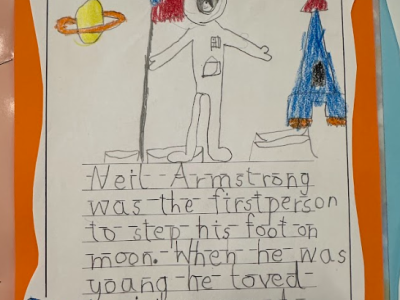 Neil Armstrong
was the first person
to step his foot on
moon. When he was
young he loved